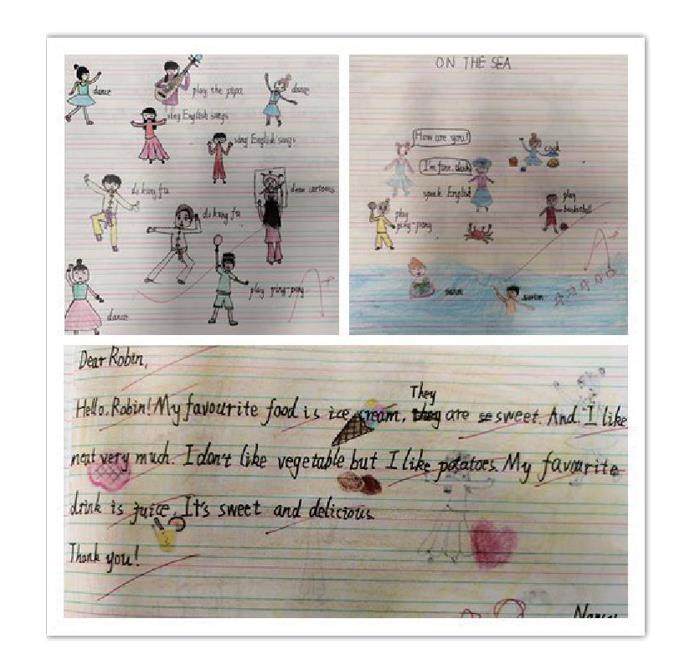 dance
play the pipa
dance
sing English songs
sing English songs
do kung fu
do kung fu
draw cartoons
play ping-pong
dance
ON THE SEA
How are you?
I'm fine, thank
cook
speak English
play
ping-pong
play
basketball
swim
swim
Dear Robin,
Hello, Robin! My favourite food is ice cream. They are sweet. And I like
meat very much. I don't like vegetable but I like potatoes. My favourite
drink is juice. It's sweet and delicious.
Thank you!